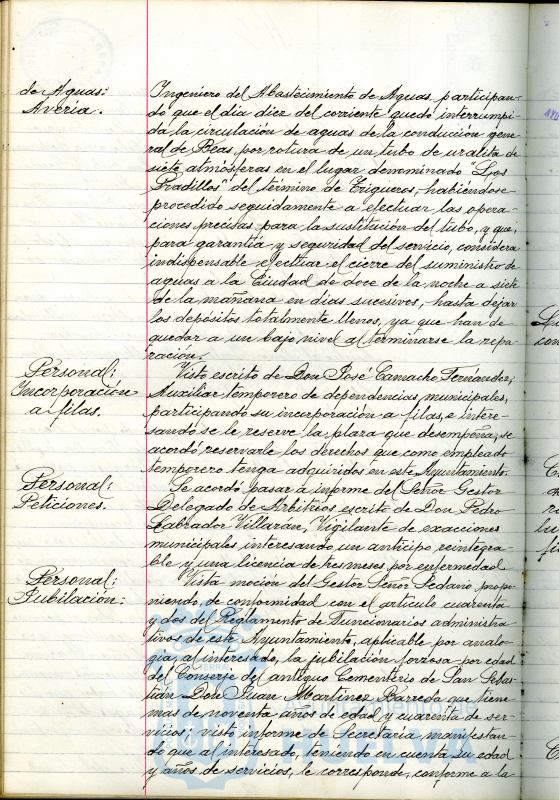 de Aguas:
Avería.
Ingeniero del Abastecimiento de Aguas participan-
do que el dia diez del corriente quedó interrumpi-
da la circulación de aguas de la conducción gene-
ral de Beas, por rotura de un tubo de uralita de
siete atmósferas en el lugar denominado "Los
Pradillos" del término de Trigueros, habiéndose
procedido seguidamente a efectuar las opera-
ciones precisas para la sustitución del tubo, y que,
para garantía y seguridad del servicio, considera
indispensable efectuar el cierre del suministro de
aguas a la Ciudad de doce de la noche a siete
de la mañana en dias sucesivos, hasta dejar
los depósitos totalmente llenos, ya que han de
quedar a un bajo nivel al terminarse la repa-
ración.
Personal:
Incorporación
a filas.
Visto escrito de Don José Camacho Fernández,
Auxiliar temporero de dependencias municipales,
participando su incorporación a filas, e intere-
sando se le reserve la plaza que desempeña, se
acordó reservarle los derechos que como empleado
temporero tenga adquiridos en este Ayuntamiento.
Personal:
Peticiones.
Se acordó pasar a informe del Señor Gestor
Delegado de Arbitrios escrito de Don Pedro
Labrador Villarán, Vigilante de exacciones
municipales interesando un anticipo reintegra-
ble y una licencia de tres meses por enfermedad.
Personal:
Jubilación:
Vista moción del Gestor Señor Sedano propo-
niendo, de conformidad con el artículo cuarenta
y dos del Reglamento de Funcionarios administra-
tivos de este Ayuntamiento, aplicable por analo-
gía, al interesado, la jubilación forzosa por edad
del Conserje del antiguo Cementerio de San Sebas-
tián Don Juan Martinez Barreda que tiene
mas de noventa años de edad y cuarenta de ser-
vicios; visto informe de Secretaría manifestan-
do que al interesado, teniendo en cuenta su edad
y años de servicios, le corresponde, conforme a la
Ayuntamiento de
HUELVA